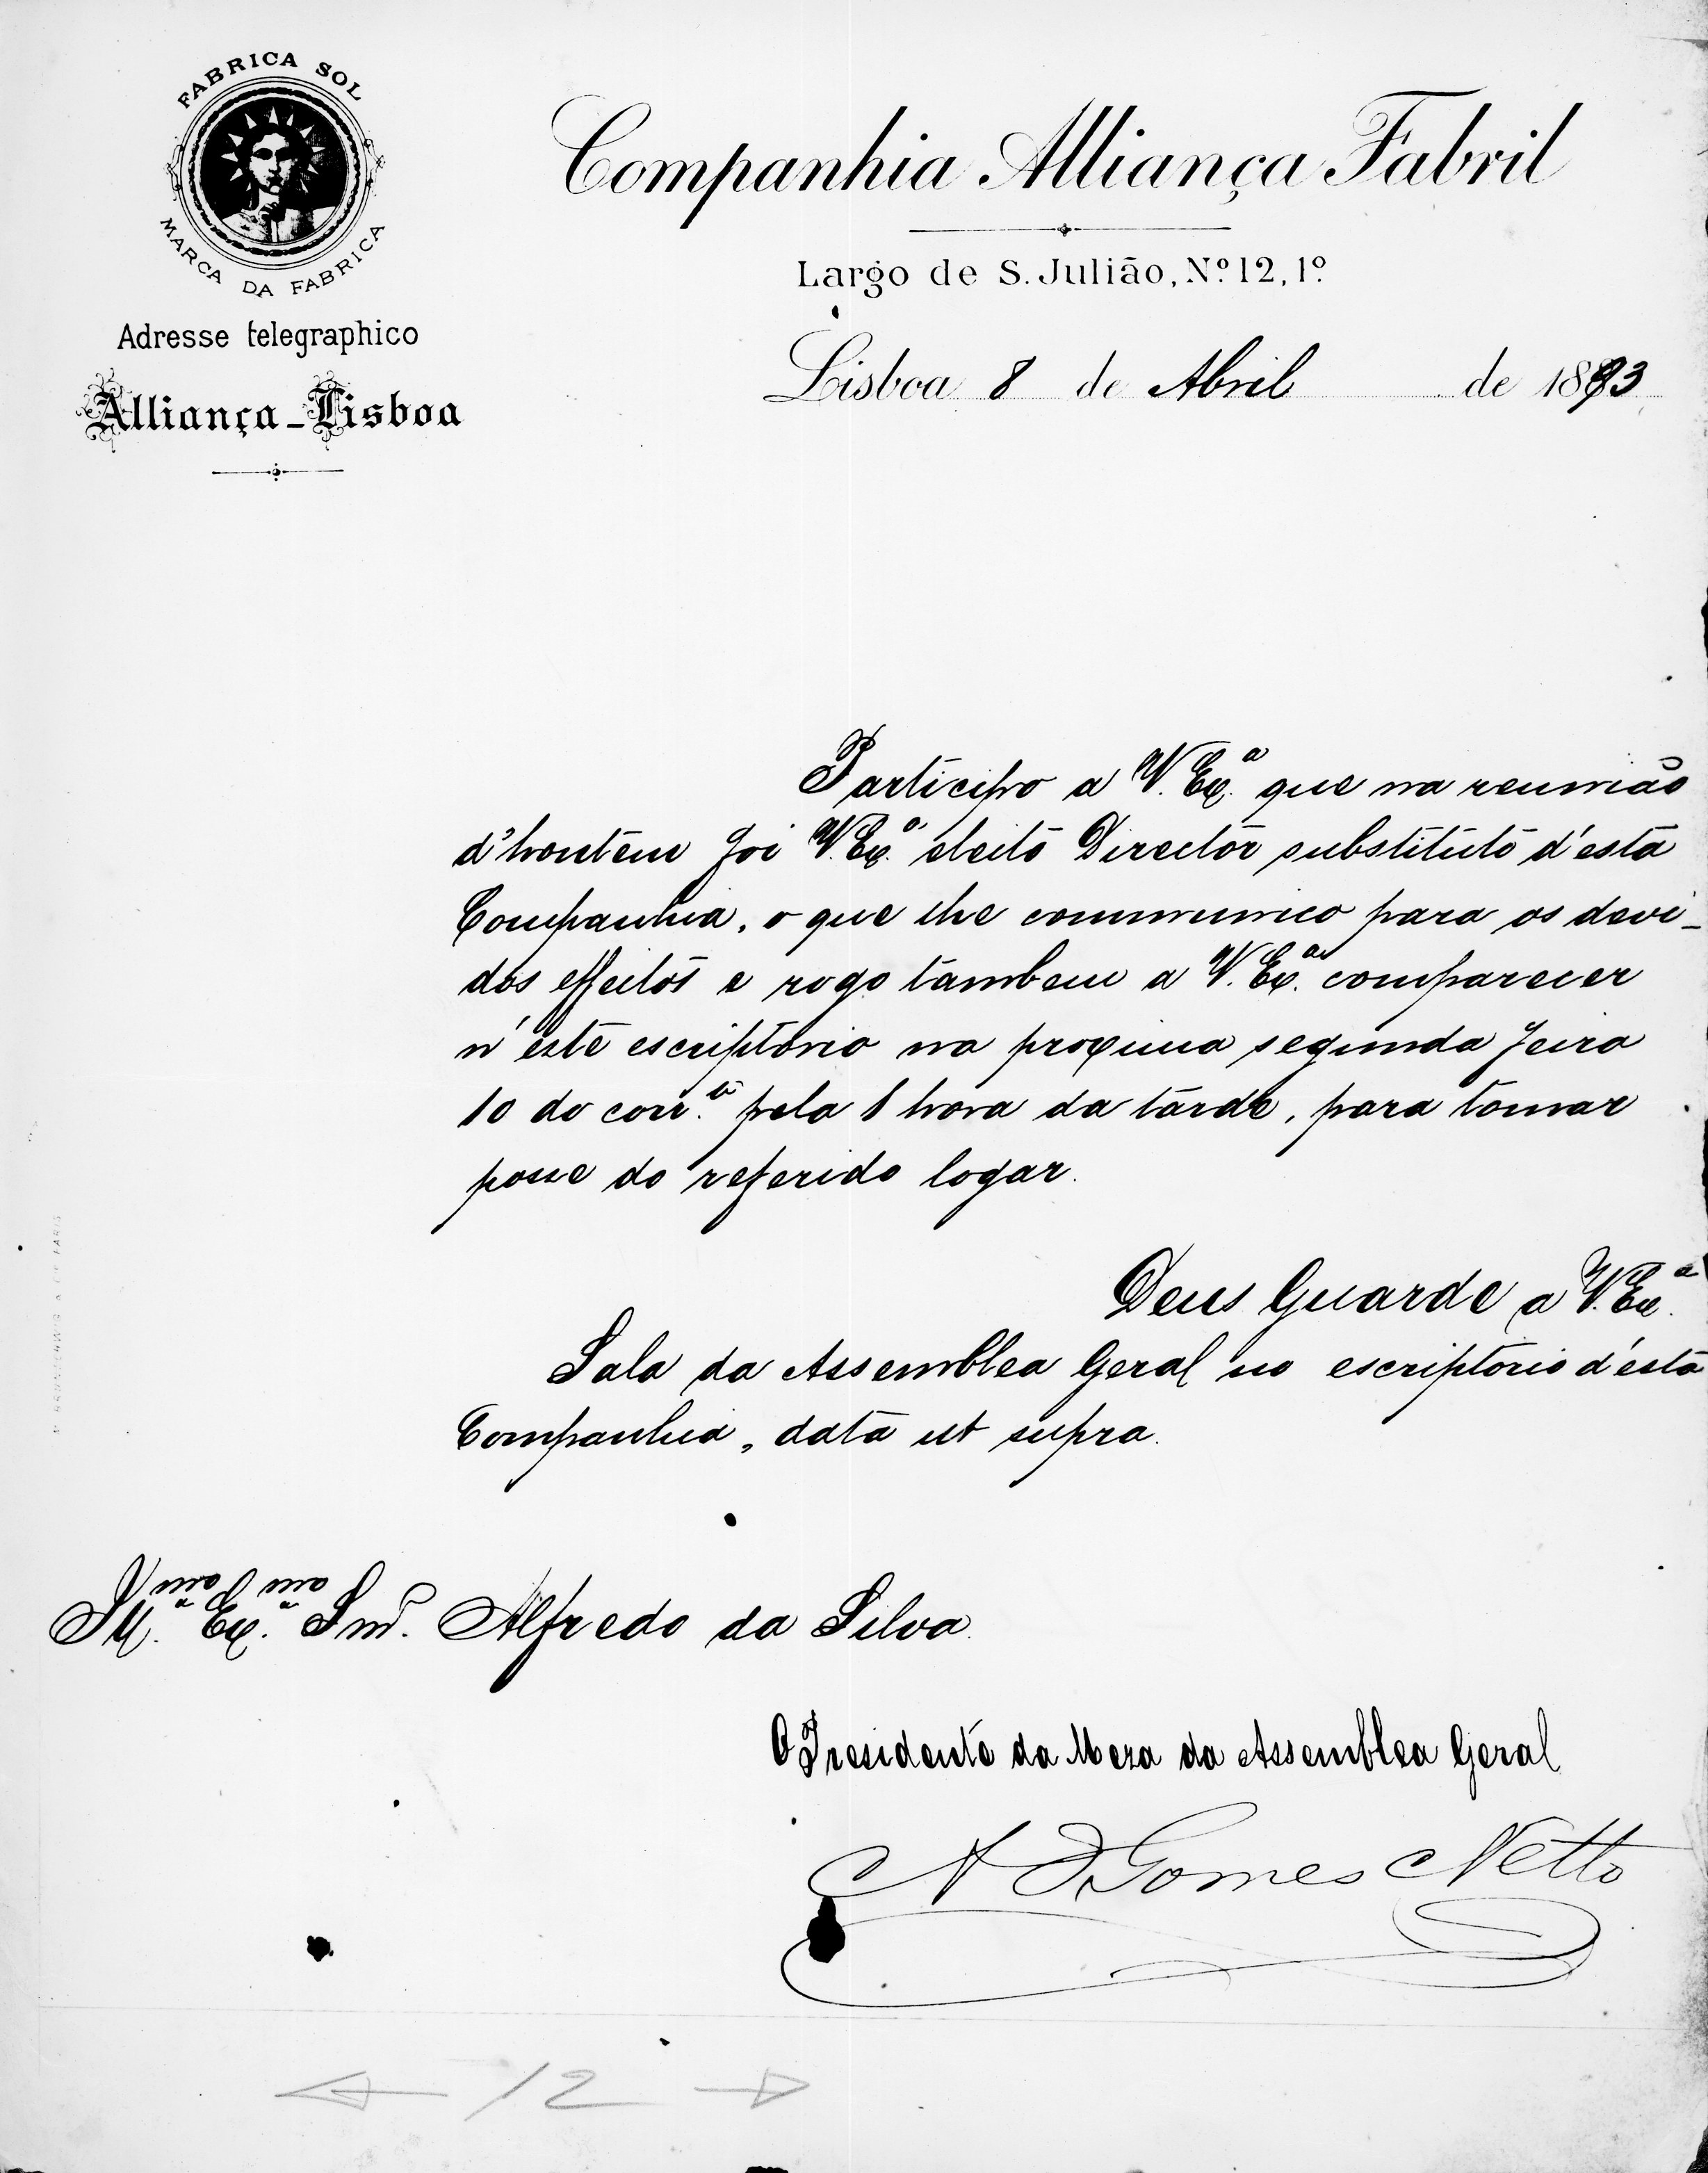 FABRICA SOL
MARCA DA FABRICA
Adresse telegraphico
Alliança-Lisboa
Companhia Alliança Fabril
Largo de S. Julião, Nº 12, 1º
Lisboa 8 de Abril de 1893
Participo a V. Exª que na reunião
d'hontem foi V. Exª eleito Director substituto d'esta
Companhia, o que lhe communico para os devi-
dos effeitos e rogo tambem a V. Exª comparecer
n'este escriptorio na proxima segunda feira
10 do corr.te pela 1 hora da tarde, para tomar
posse do referido logar.
Deus Guarde a V. Exª
Sala da Assemblea Geral no escriptorio d'esta
Companhia, data ut supra.
Illmo Exmo Snr. Alfredo da Silva
O Presidente da Meza da Assemblea Geral
A J Gomes Netto
12